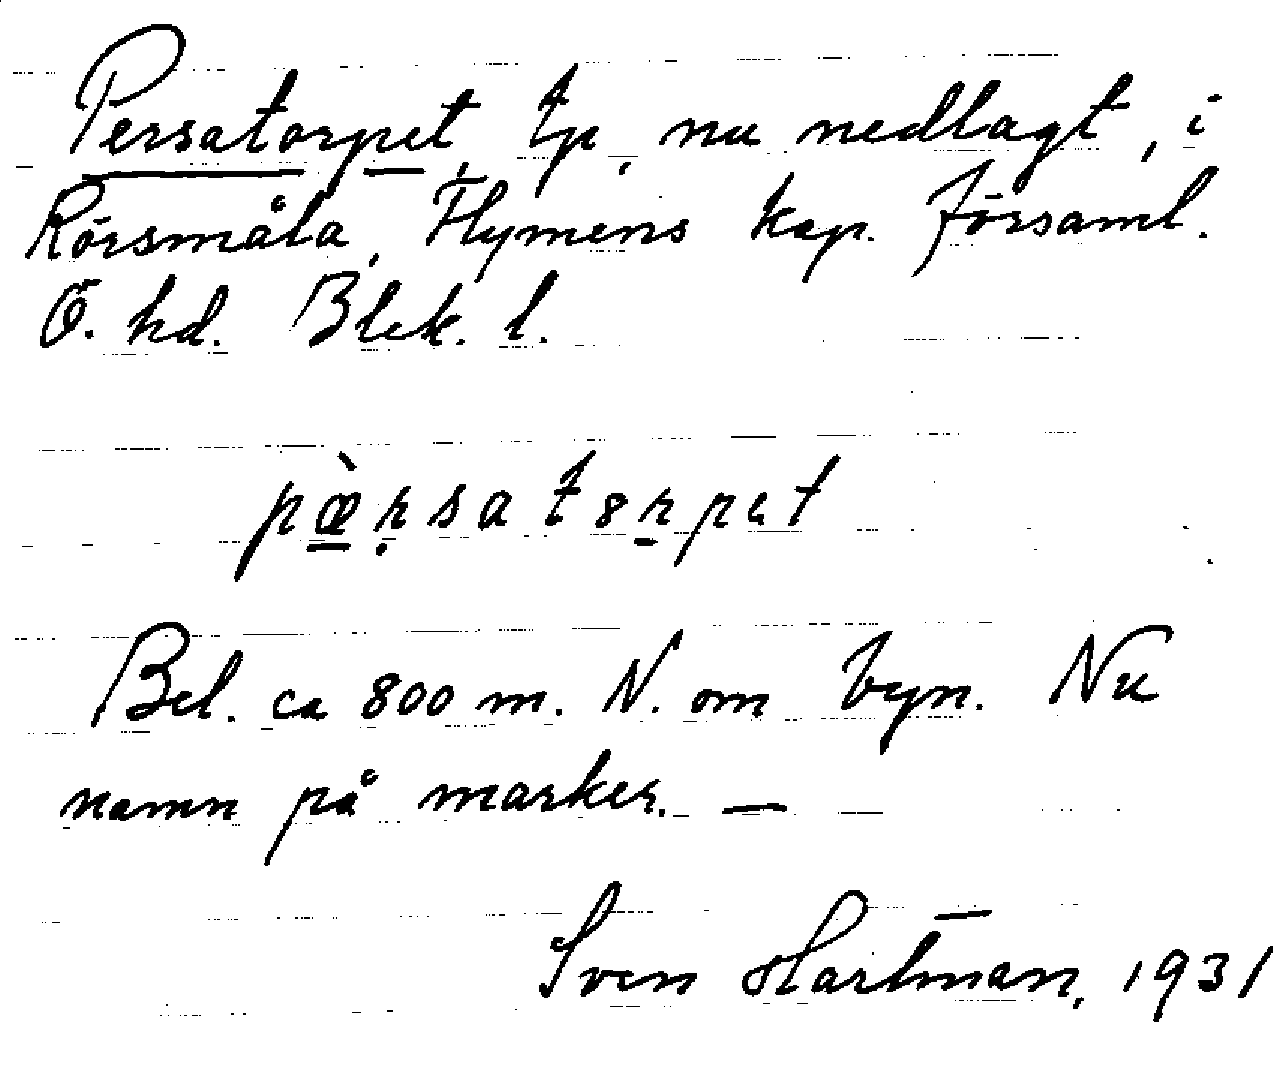 Persatorpet, tp, nu nedlagt, i
Rörsmåla, Flymens kap. församl.
Ö. hd. Blek. l.
pæ̀ṛsatȣrpet
Bel. ca 800 m. N. om byn. Nu
namn på marker. —
Sven Hartman, 1931